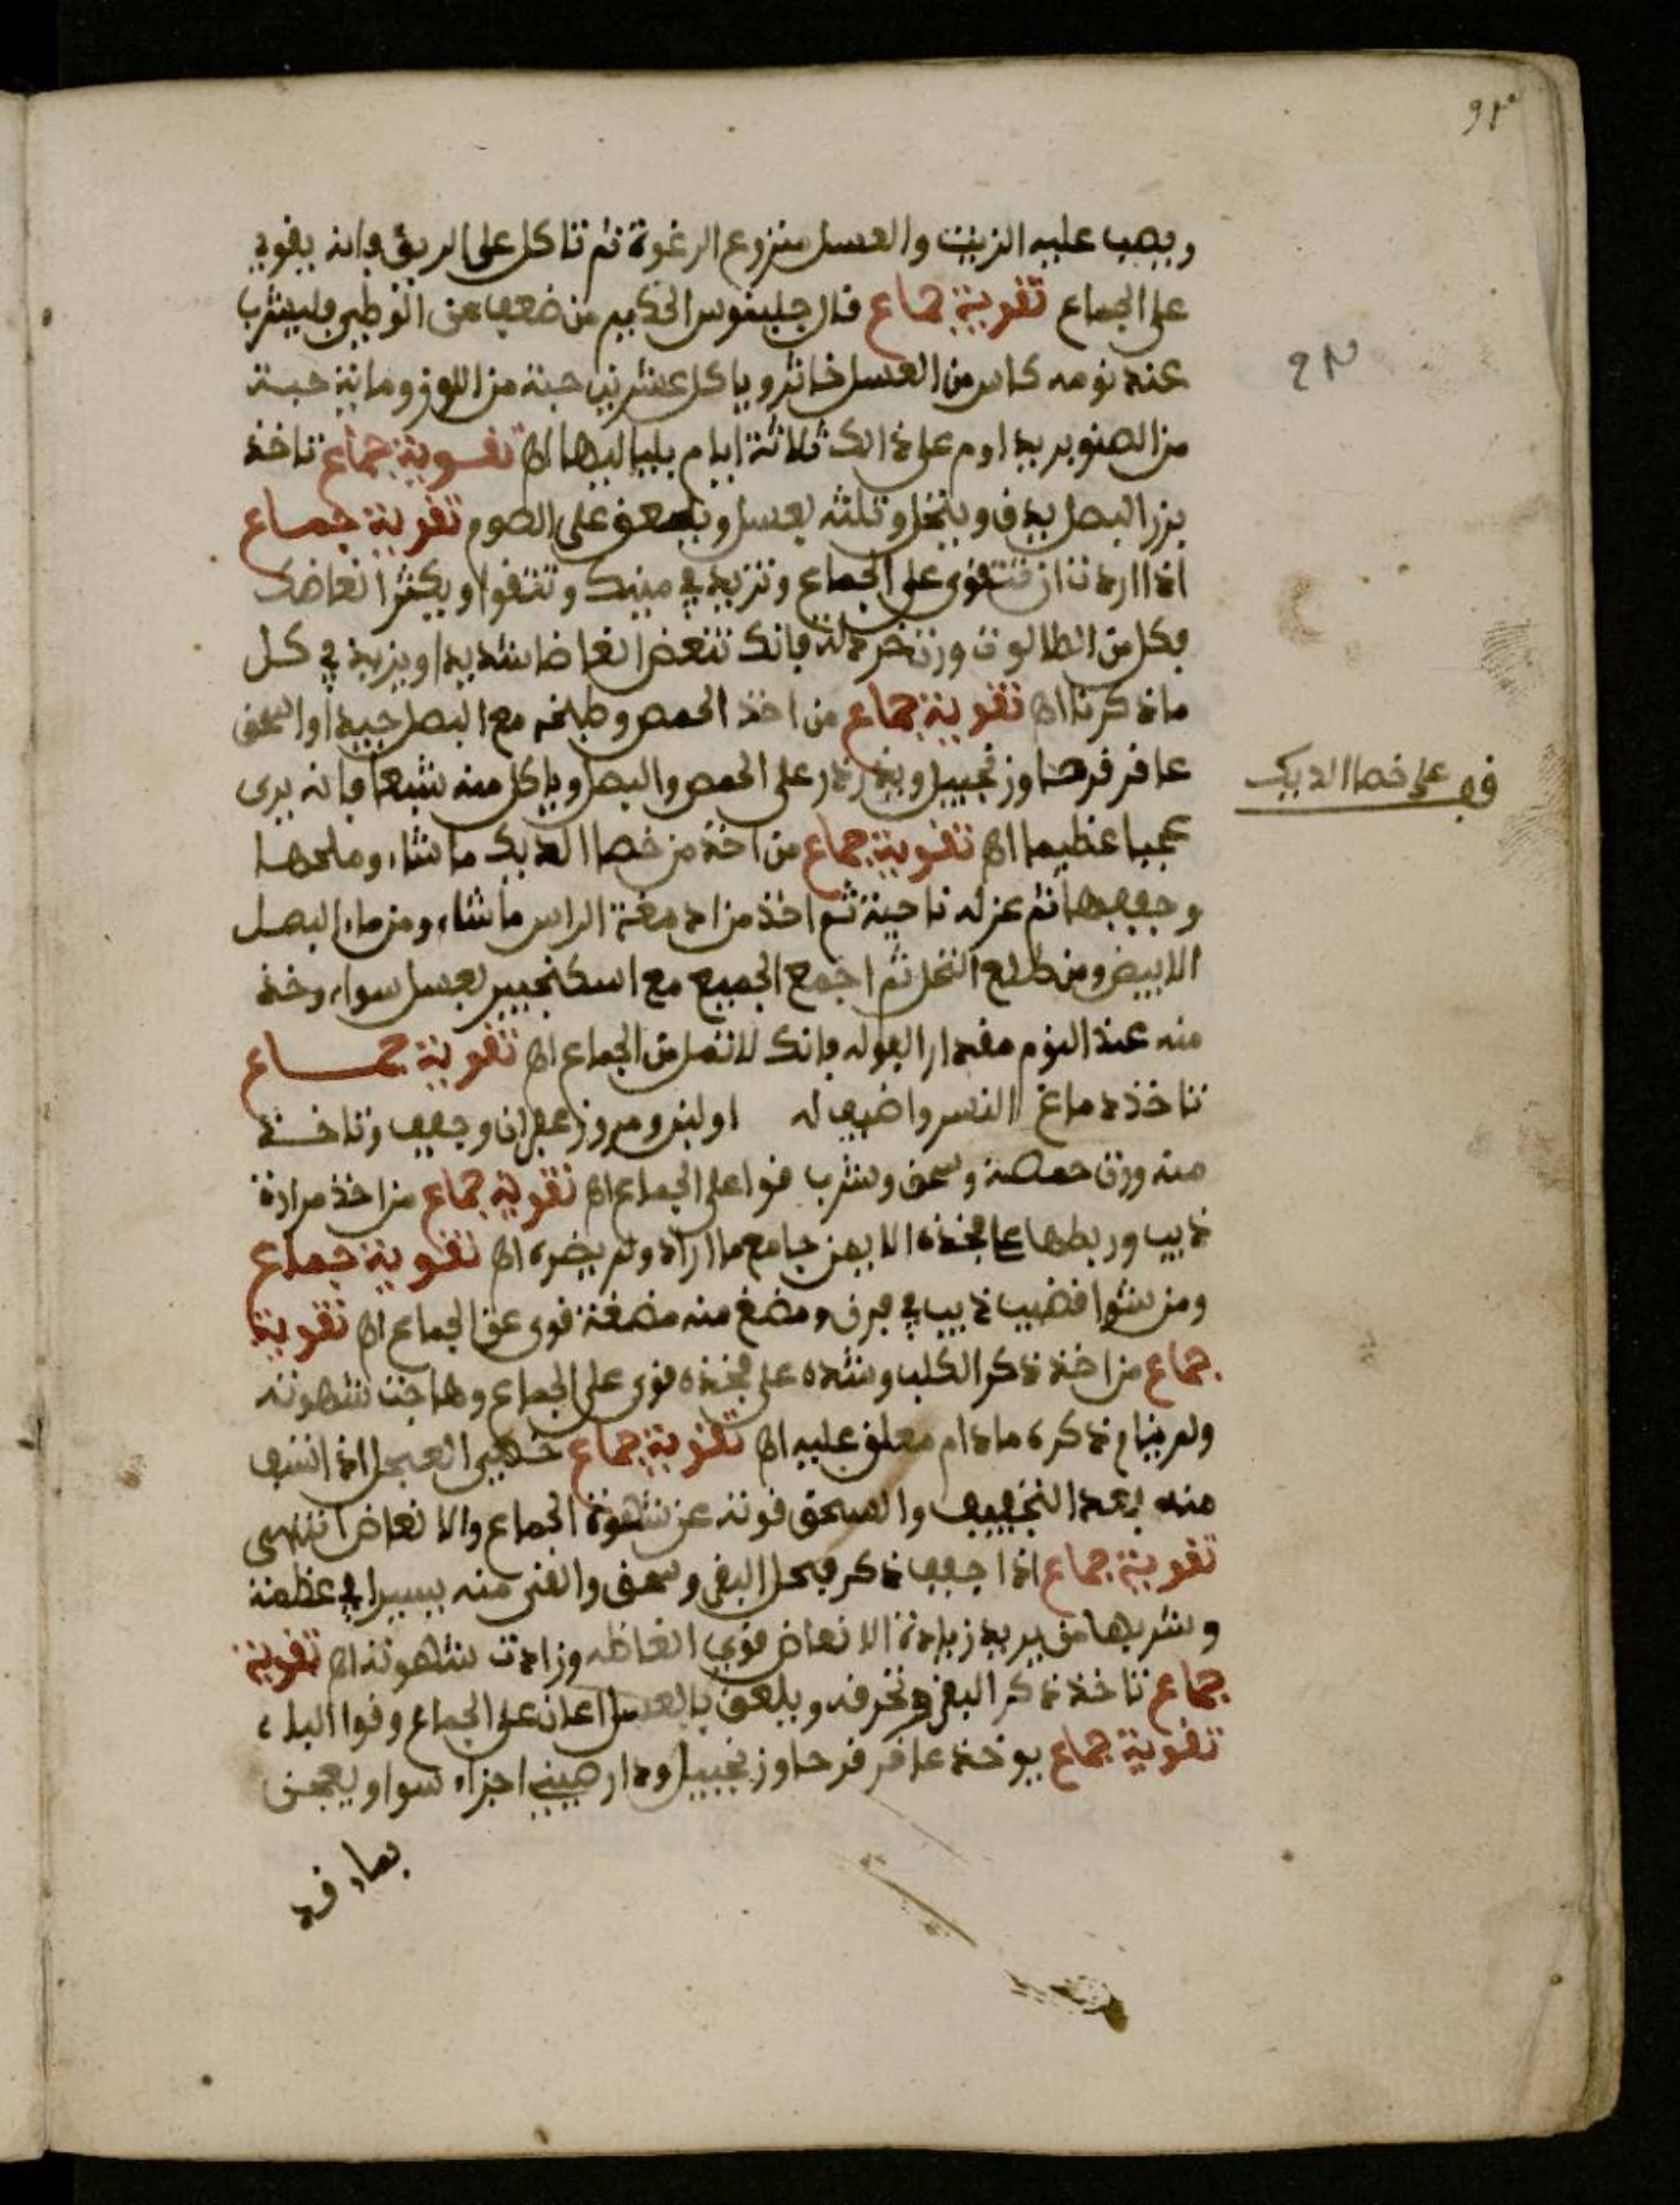 ويصب عليه الزيت والعسل منزوع الرغوة ثم تاكل على الريق فانه يقوي
على الجماع تقوية جماع قال جلينوس الحكيم من ضعف عن الوطي فليشرب
عند نومه كاس من العسل خاثر وياكل عشرين حبة من اللوز وماية حبة
من الصنوبر يداوم على ذالك ثلاثة ايام بلياليها اهـ تقوية جماع تاخذ
بزر البصل يدق وينخل وتلته بعسل ويلعق على الصوم تقوية جماع
اذا اردت ان تتقوى على الجماع وتزيد في منيك وتتقوا ويكثر انعاضك
فكل من فانك تنعض انعاضا شديدا ويزيد في كل
ما ذكرنا اهـ تقوية جماع من اخذ الحمص وطبخه مع البصل جيدا واسحق
عافر فرحا وزنجبيل ويذرذر على الحمص والبصل وياكل منه شبعا فانه يرى
عجبا عظيما اهـ تقوية جماع من اخذ من خصا الديك ما شاء وملحها
وجففها ثم عزله ناحية ثم اخذ من ادمغة الراس ما شاء ومن ماء البصل
الابيض ومن طلع النخل ثم اجمع الجميع مع اسكنجبير بعسل سواء وخذ
منه عند النوم مقدار الفوله فانك لا تمل من الجماع اهـ تقوية جماع
تاخذ دماغ النسر واضيف له اولبن وزعفران وجفف وتاخذ
منه وزن حمصة وسحق وشرب قوا على الجماع اهـ تقوية جماع من اخذ مرارة
ذيب وربطها على فخذه الايمن جامع ما اراد ولم يضره اهـ تقوية جماع
ومن شوا قضيب ذيب في فرن ومضغ منه مضغة قوى على الجماع اهـ تقوية
جماع من اخذ ذكر الكلب وشده على فخذه قوى على الجماع وهاجت شهوته
ولم ينام ذكره ما دام معلق عليه اهـ تقوية جماع خصي العجل اذا اشرب
منه بعد التجفيف والسحق قوته عن شهوة الجماع والانعاض انتهى
تقوية جماع اذا اجفف ذكر فحل البقر وسحق والقى منه يسيرا في
وشربها من يريد زيادة الانعاض قوي انعاظه وزادت شهوته اهـ تقوية
جماع تاخذ ذكر البقر وتحرقه ويلعق بالعسل اعان على الجماع وقوا الباء
تقوية جماع يوخذ عافر فرحا وزنجبيل ودار صيني اجزاء سوا ويعجن
بماء
قف على خصا الديك